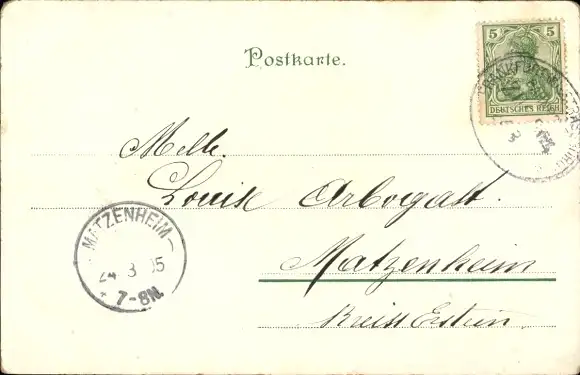 Postkarte.
5 5
DEUTSCHES REICH
Melle.
Louise Arbogast.
MATZENHEIM
24 3 05
7-8N.
Matzenheim
Kreiss Erstein.